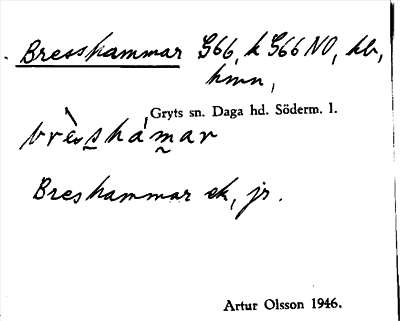 Bresshammar G66, k G66 NO, hb,
hmn,
Gryts sn. Daga hd. Söderm. l.
brès̲hámar
Breshammar ek, jr.
Artur Olsson 1946.